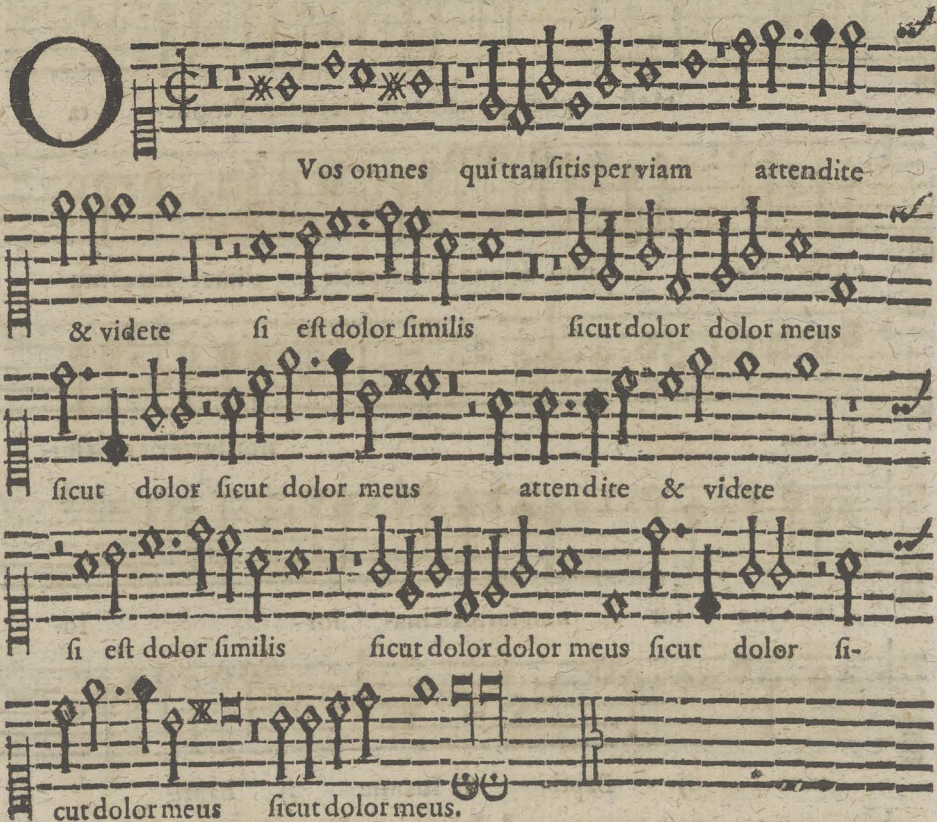 O Vos omnes qui tranſitis per viam attendite
& videte ſi eſt dolor ſimilis ſicut dolor dolor meus
ſicut dolor ſicut dolor meus attendite & videte
ſi eſt dolor ſimilis ſicut dolor dolor meus ſicut dolor ſi-
cut dolor meus ſicut dolor meus.